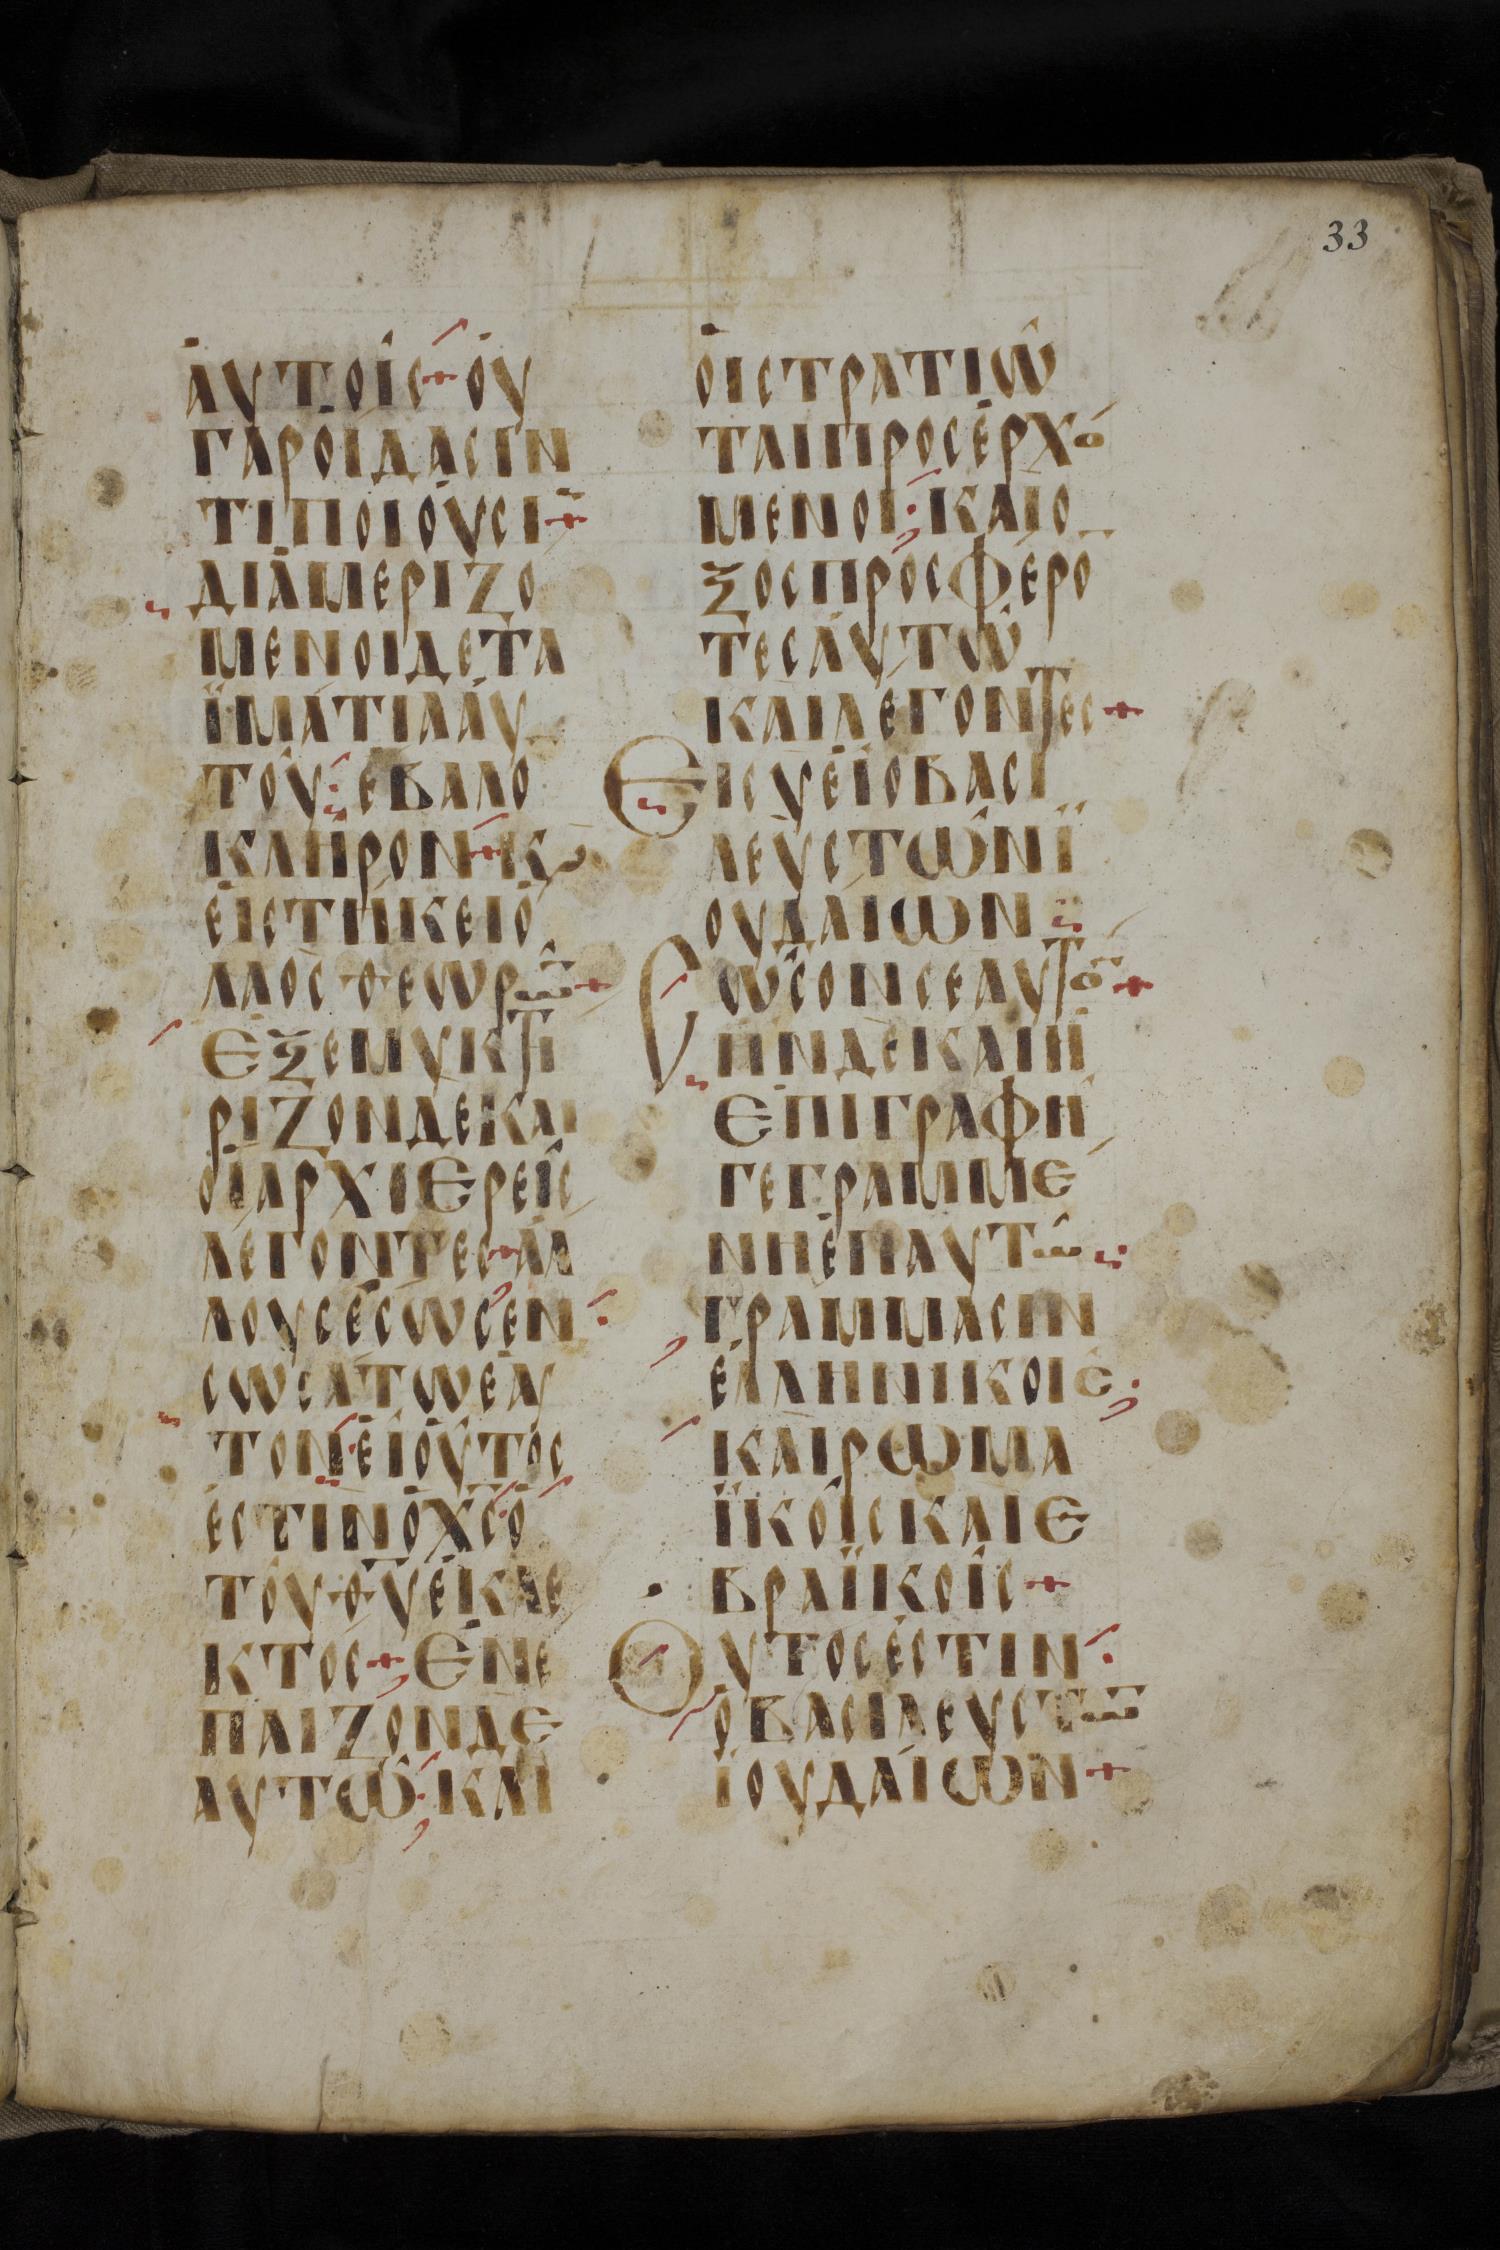 33
ἀυτοῖς + ὀυ
γαρ ὀιδασιν
τι ποιοῦσι ̅ +
διαμεριζο
μενοι δε τα
ϊμάτια ἀυ
του· ἐβαλο
κληρον + κ
ἐιστήκει ὁ
λαος θεωρω̅ +
Ἐξεμυκτη
ριζον δε και
ὁι ἀρχιερεῖς
λέγοντες + ἀλ
λους ἐσωσεν·
σωσατω ἑαυ
τον· ἐι οῦτος
ἐστιν ὁ χ̅ς̅ ὁ
του θ̅υ̅ ἐκλε
κτος + Ἐνε
παιζον δε
αυτῶ· και
ὁι στρατιῶ
ται προσερχό
μενοι· και ο
ξος προσφέρο
τες ἀυτῶ
και λεγοντες +
Ει συ εῖ ὁ βασι
λευς τῶν ϊ
ουδαιων
Σῶσον σεαυτο̅ +
Ην δε και ἡ
επιγραφὴ
γεγραμμέ
νη ἐπ αυτῶ
γραμμασιν
ἑλληνικοις·
και ρωμα
ϊκοῖς και ε
βραϊκοῖς +
Οὑτος ἐστιν·
ὁ βασιλευς τω̅
ϊουδαίων +